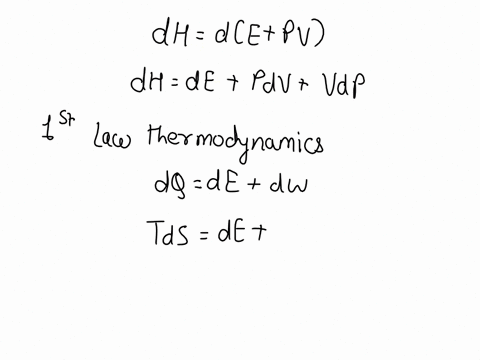 dH = d(E+ PV)
dH = dE + PdV + VdP
1st Law thermodynamics
dQ = dE + dw
TdS = dE +